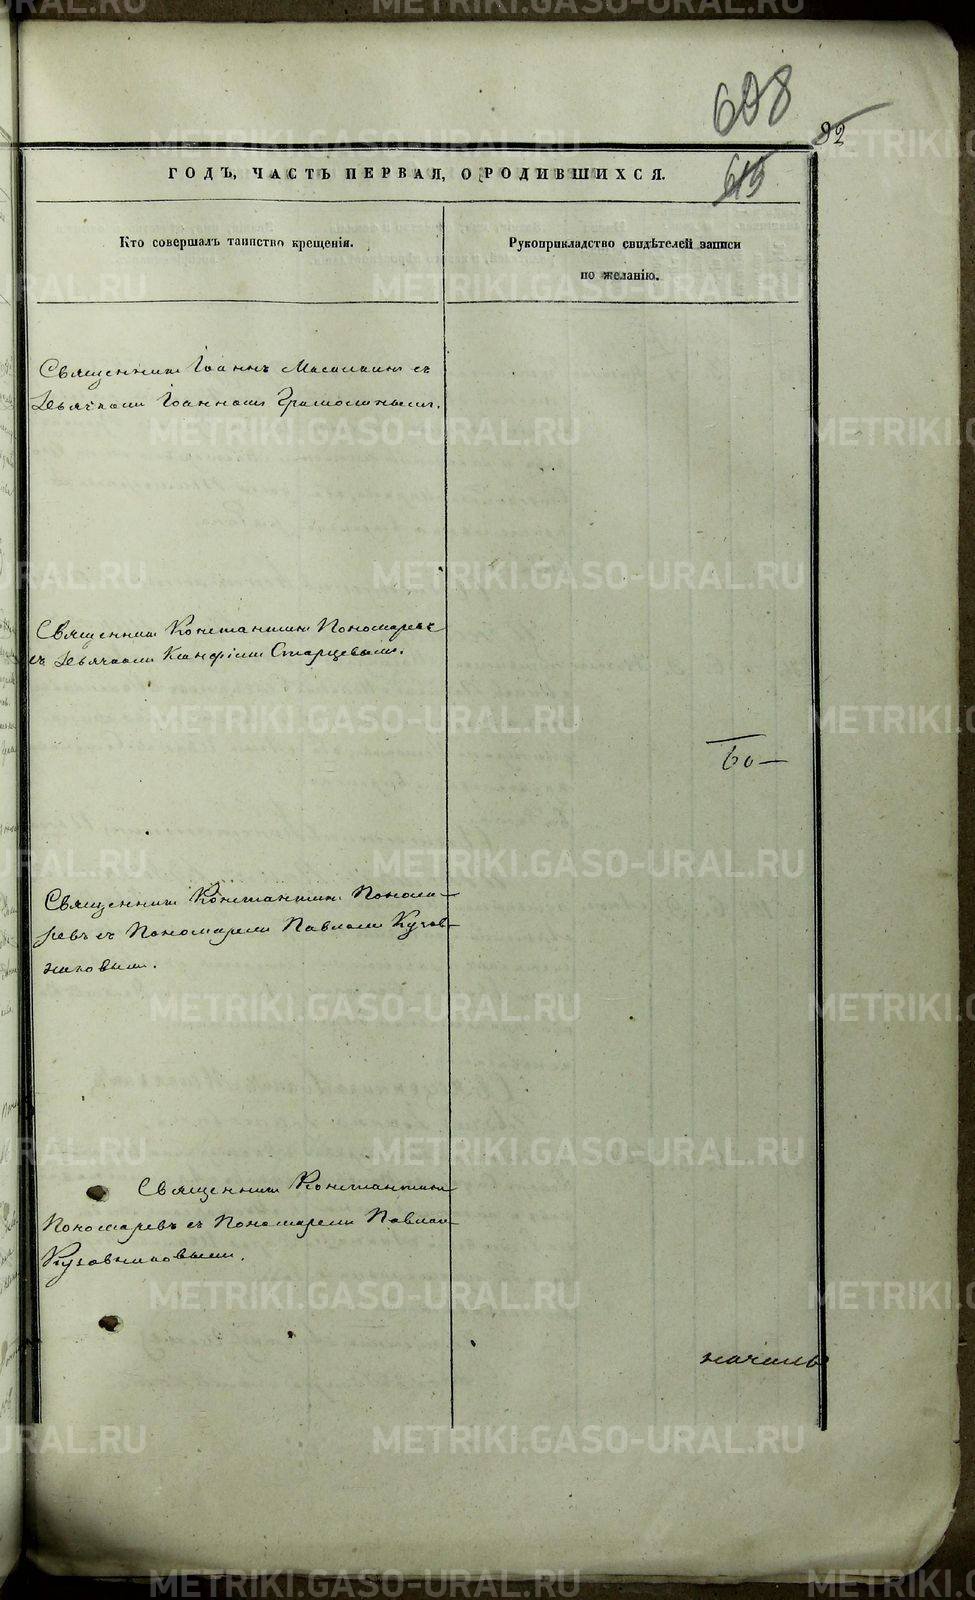 608
92
615
ГОДЪ, ЧАСТЬ ПЕРВАЯ, О РОДИВШИХСЯ.
Кто совершалъ таинство крещенія.
Рукоприкладство свидѣтелей записи
по желанію.
Священник Іоаннъ съ
Дьячком Іоанном
Священник Константин Пономаревъ
съ Дьячком Старцевым.
60—
Священник Константин Понома-
ревъ съ Пономарем Павлом Кузов-
никовым.
Священник Константин
Пономаревъ съ Пономарем Павлом
Кузовниковым.
METRIKI.GASO-URAL.RU